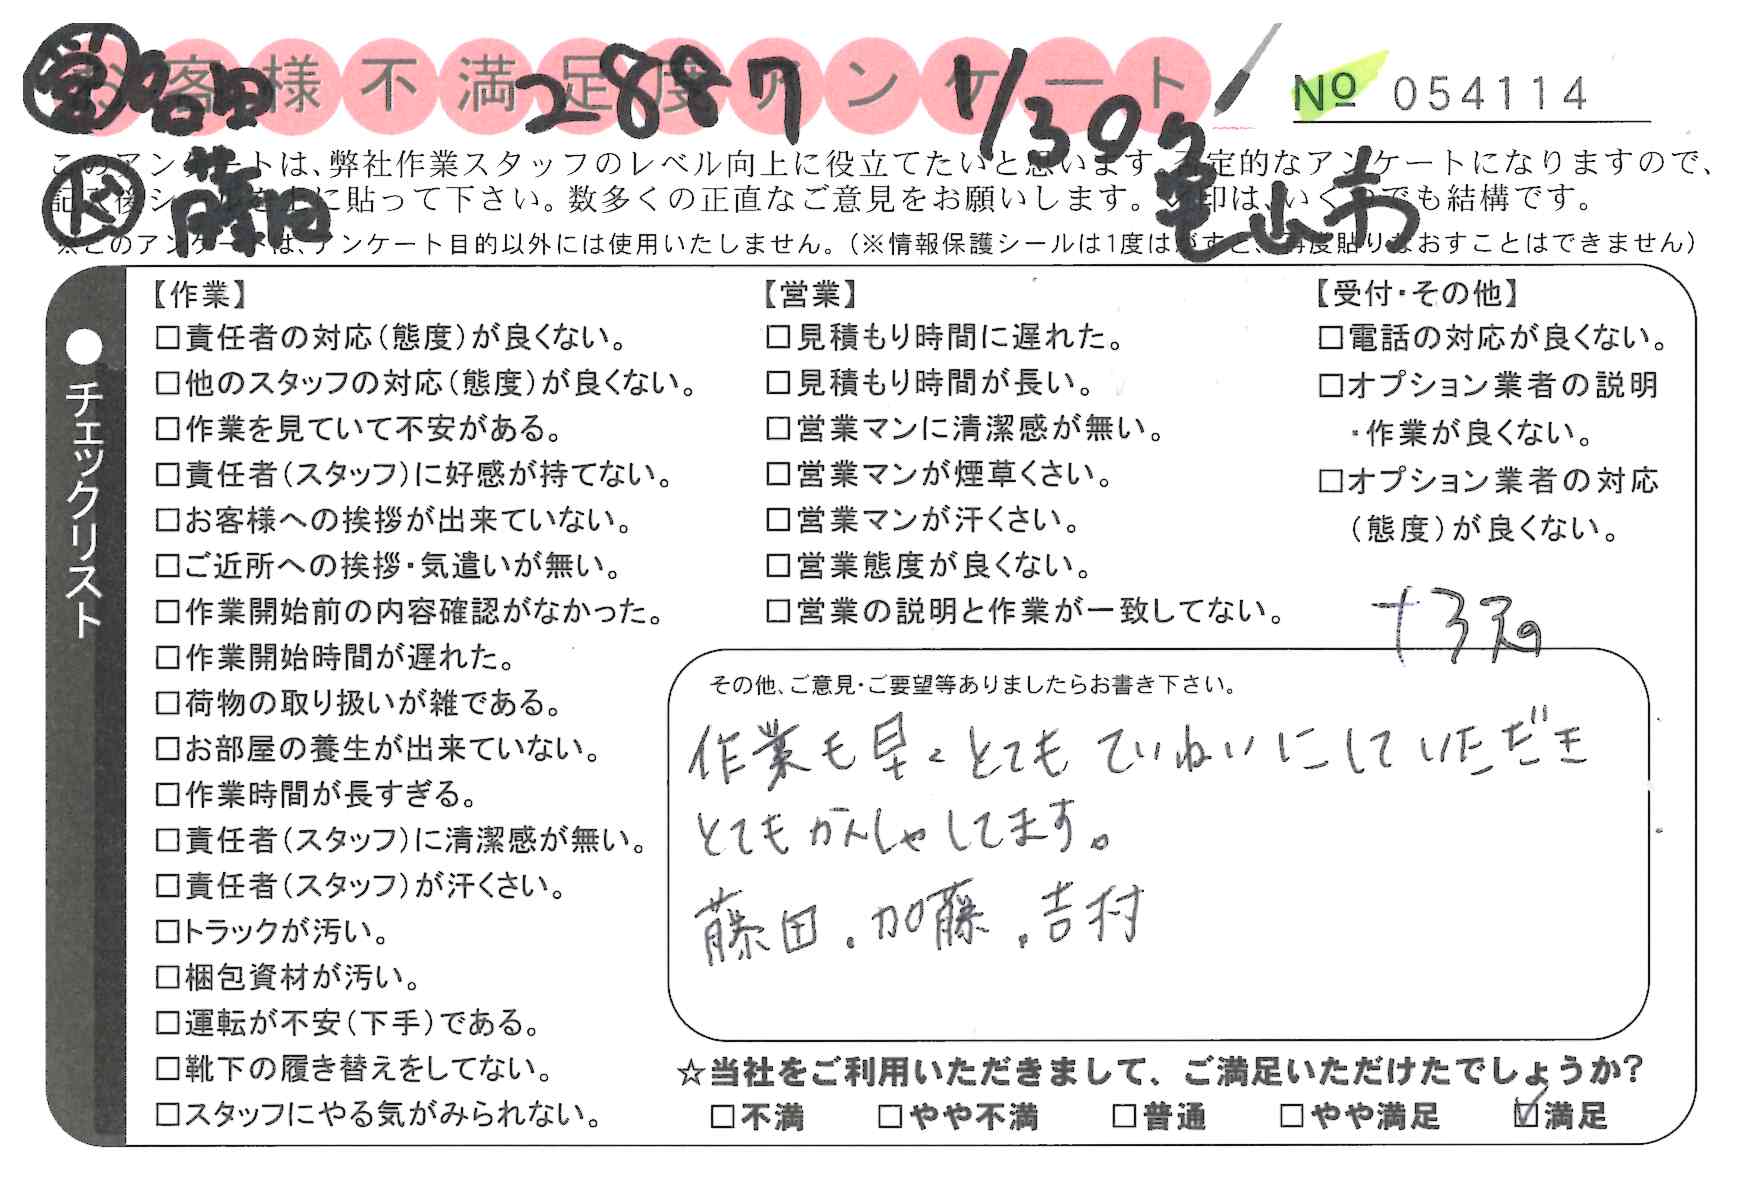 お客様不満足度アンケート
営 名田 2887 1/30
№ 054114
ド 藤田
亀山市
このアンケートは、弊社作業スタッフのレベル向上に役立てたいと思います。否定的なアンケートになりますので、
記記後シールを上に貼って下さい。数多くの正直なご意見をお願いします。
※このアンケートは、アンケート目的以外には使用いたしません。(※情報保護シールは1度はがすと、再度貼りなおすことはできません)
●チェックリスト
【作業】
□責任者の対応(態度)が良くない。
□他のスタッフの対応(態度)が良くない。
□作業を見ていて不安がある。
□責任者(スタッフ)に好感が持てない。
□お客様への挨拶が出来ていない。
□ご近所への挨拶・気遣いが無い。
□作業開始前の内容確認がなかった。
□作業開始時間が遅れた。
□荷物の取り扱いが雑である。
□お部屋の養生が出来ていない。
□作業時間が長すぎる。
□責任者(スタッフ)に清潔感が無い。
□責任者(スタッフ)が汗くさい。
□トラックが汚い。
□梱包資材が汚い。
□運転が不安(下手)である。
□靴下の履き替えをしてない。
□スタッフにやる気がみられない。
【営業】
□見積もり時間に遅れた。
□見積もり時間が長い。
□営業マンに清潔感が無い。
□営業マンが煙草くさい。
□営業マンが汗くさい。
□営業態度が良くない。
□営業の説明と作業が一致してない。
【受付・その他】
□電話の対応が良くない。
□オプション業者の説明
・作業が良くない。
□オプション業者の対応
(態度)が良くない。
その他、ご意見・ご要望等ありましたらお書き下さい。
作業も早くとても ていねいにしていただき
とてもかんしゃしてます。
藤田.加藤.吉村
☆当社をご利用いただきまして、ご満足いただけたでしょうか?
□不満 □やや不満 □普通 □やや満足 ☑満足